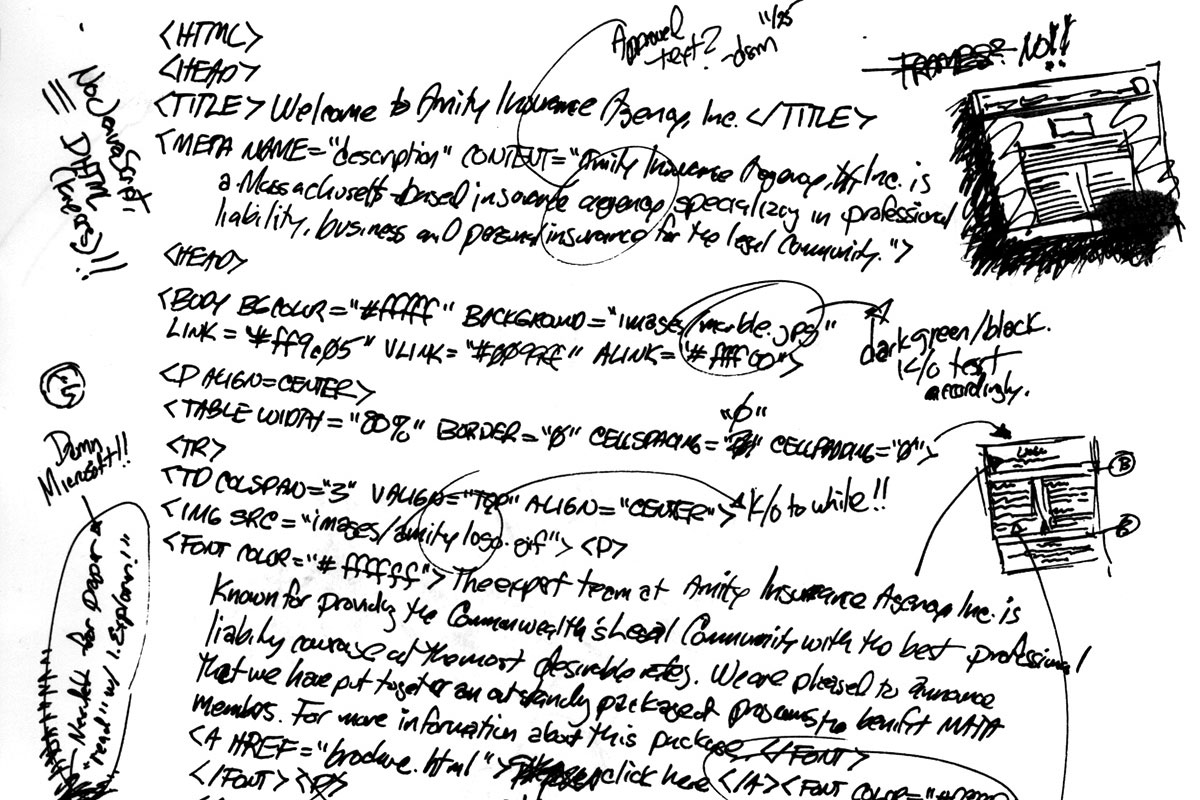 <HTML>
<HEAD>
<TITLE> Welcome to Amity Insurance Agency, Inc. </TITLE>
<META NAME="description" CONTENT="Amity Insurance Agency, Inc. is
a Massachusetts-based insurance agency specializing in professional
liability, business and personal insurance for the legal community.">
<HEAD>
<BODY BGCOLOR="#fffff" BACKGROUND="images/marble.jpg"
LINK="#ff9c05" VLINK="#0099ff" ALINK="#ffff00">
<P ALIGN=CENTER>
"0"
<TABLE WIDTH="80%" BORDER="0" CELLSPACING= CELLPADDING="0">
<TR>
<TD COLSPAN="3" VALIGN="TOP" ALIGN="CENTER">
<IMG SRC="images/amitylogo.gif"> <P>
<FONT COLOR="#ffffff"> The expert team at Amity Insurance Agency Inc. is
known for providing the Commonwealth's Legal Community with the best professional
liability coverage at the most desirable rates. We are pleased to announce
that we have put together an outstanding package of programs to benefit MATA
members. For more information about this package, </FONT>
<A HREF="brochure.html"> click here </A> <FONT COLOR="#
</FONT> <P>
Approval
text?
-dsm
11/25
FRAMES? NO!!
dark green/black.
K/o text
accordingly.
K/o to white!!
B
No JavaScript,
DHTML
(Knopes)!!
Damn
Microsoft!!
Needed for paper
"read" w/ I.Explorer!"